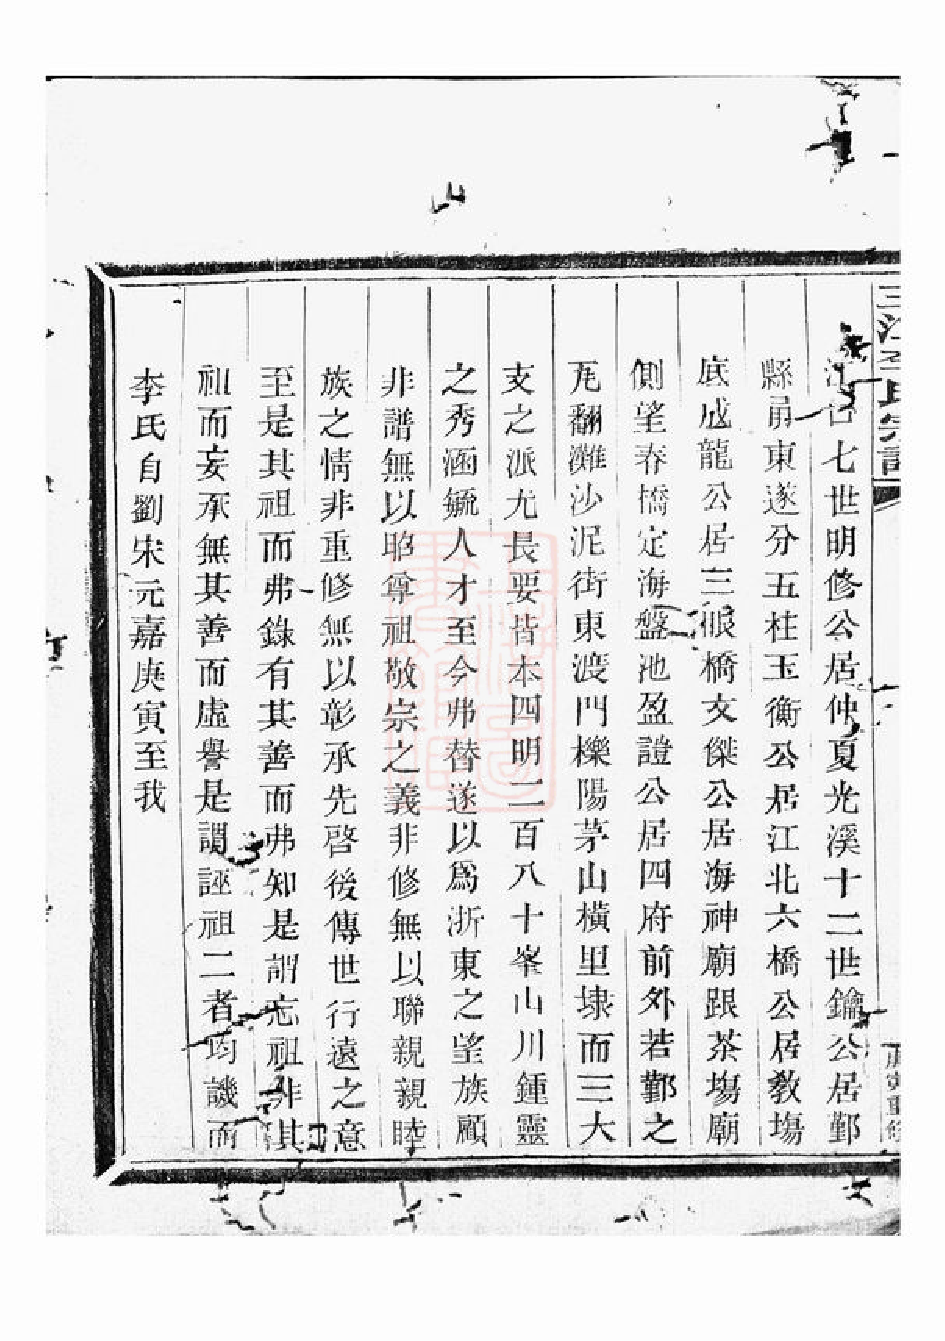 三江李氏宗譜
江口七世明修公居仲夏光溪十二世鑰公居鄞
縣甬東遂分五桂玉衡公居江北六橋公居敎塲
底成龍公居三眼橋文傑公居海神廟跟茶塲廟
側望春橋定海盤池盈證公居四府前外若鄞之
尾翻灘沙泥街東渡門櫟陽茅山橫里埭而三大
支之派尤長要皆本四明二百八十峯山川鍾靈
之秀涵毓人才至今弗替遂以爲浙東之望族顧
非譜無以昭尊祖敬宗之義非修無以聯親親睦
族之情非重修無以彰承先啓後傳世行遠之意
至是其祖而弗錄有其善而弗知是謂忘祖非其
祖而妄承無其善而虛譽是謂誣祖二者均譏而
李氏自劉宋元嘉庚寅至我